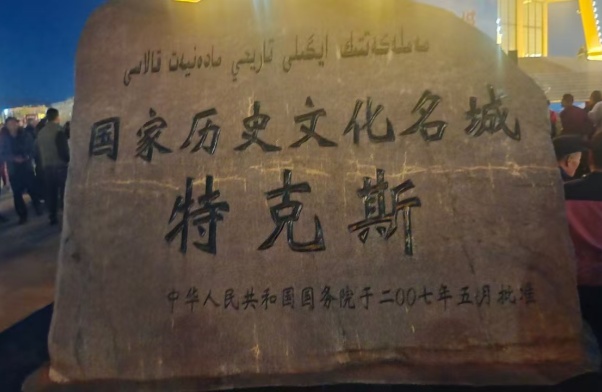 مەملەكەتتىك ايگىلى تاريحي مادەنيەت قالاسى
国家历史文化名城
特克斯
中华人民共和国国务院于二00七年五月批准